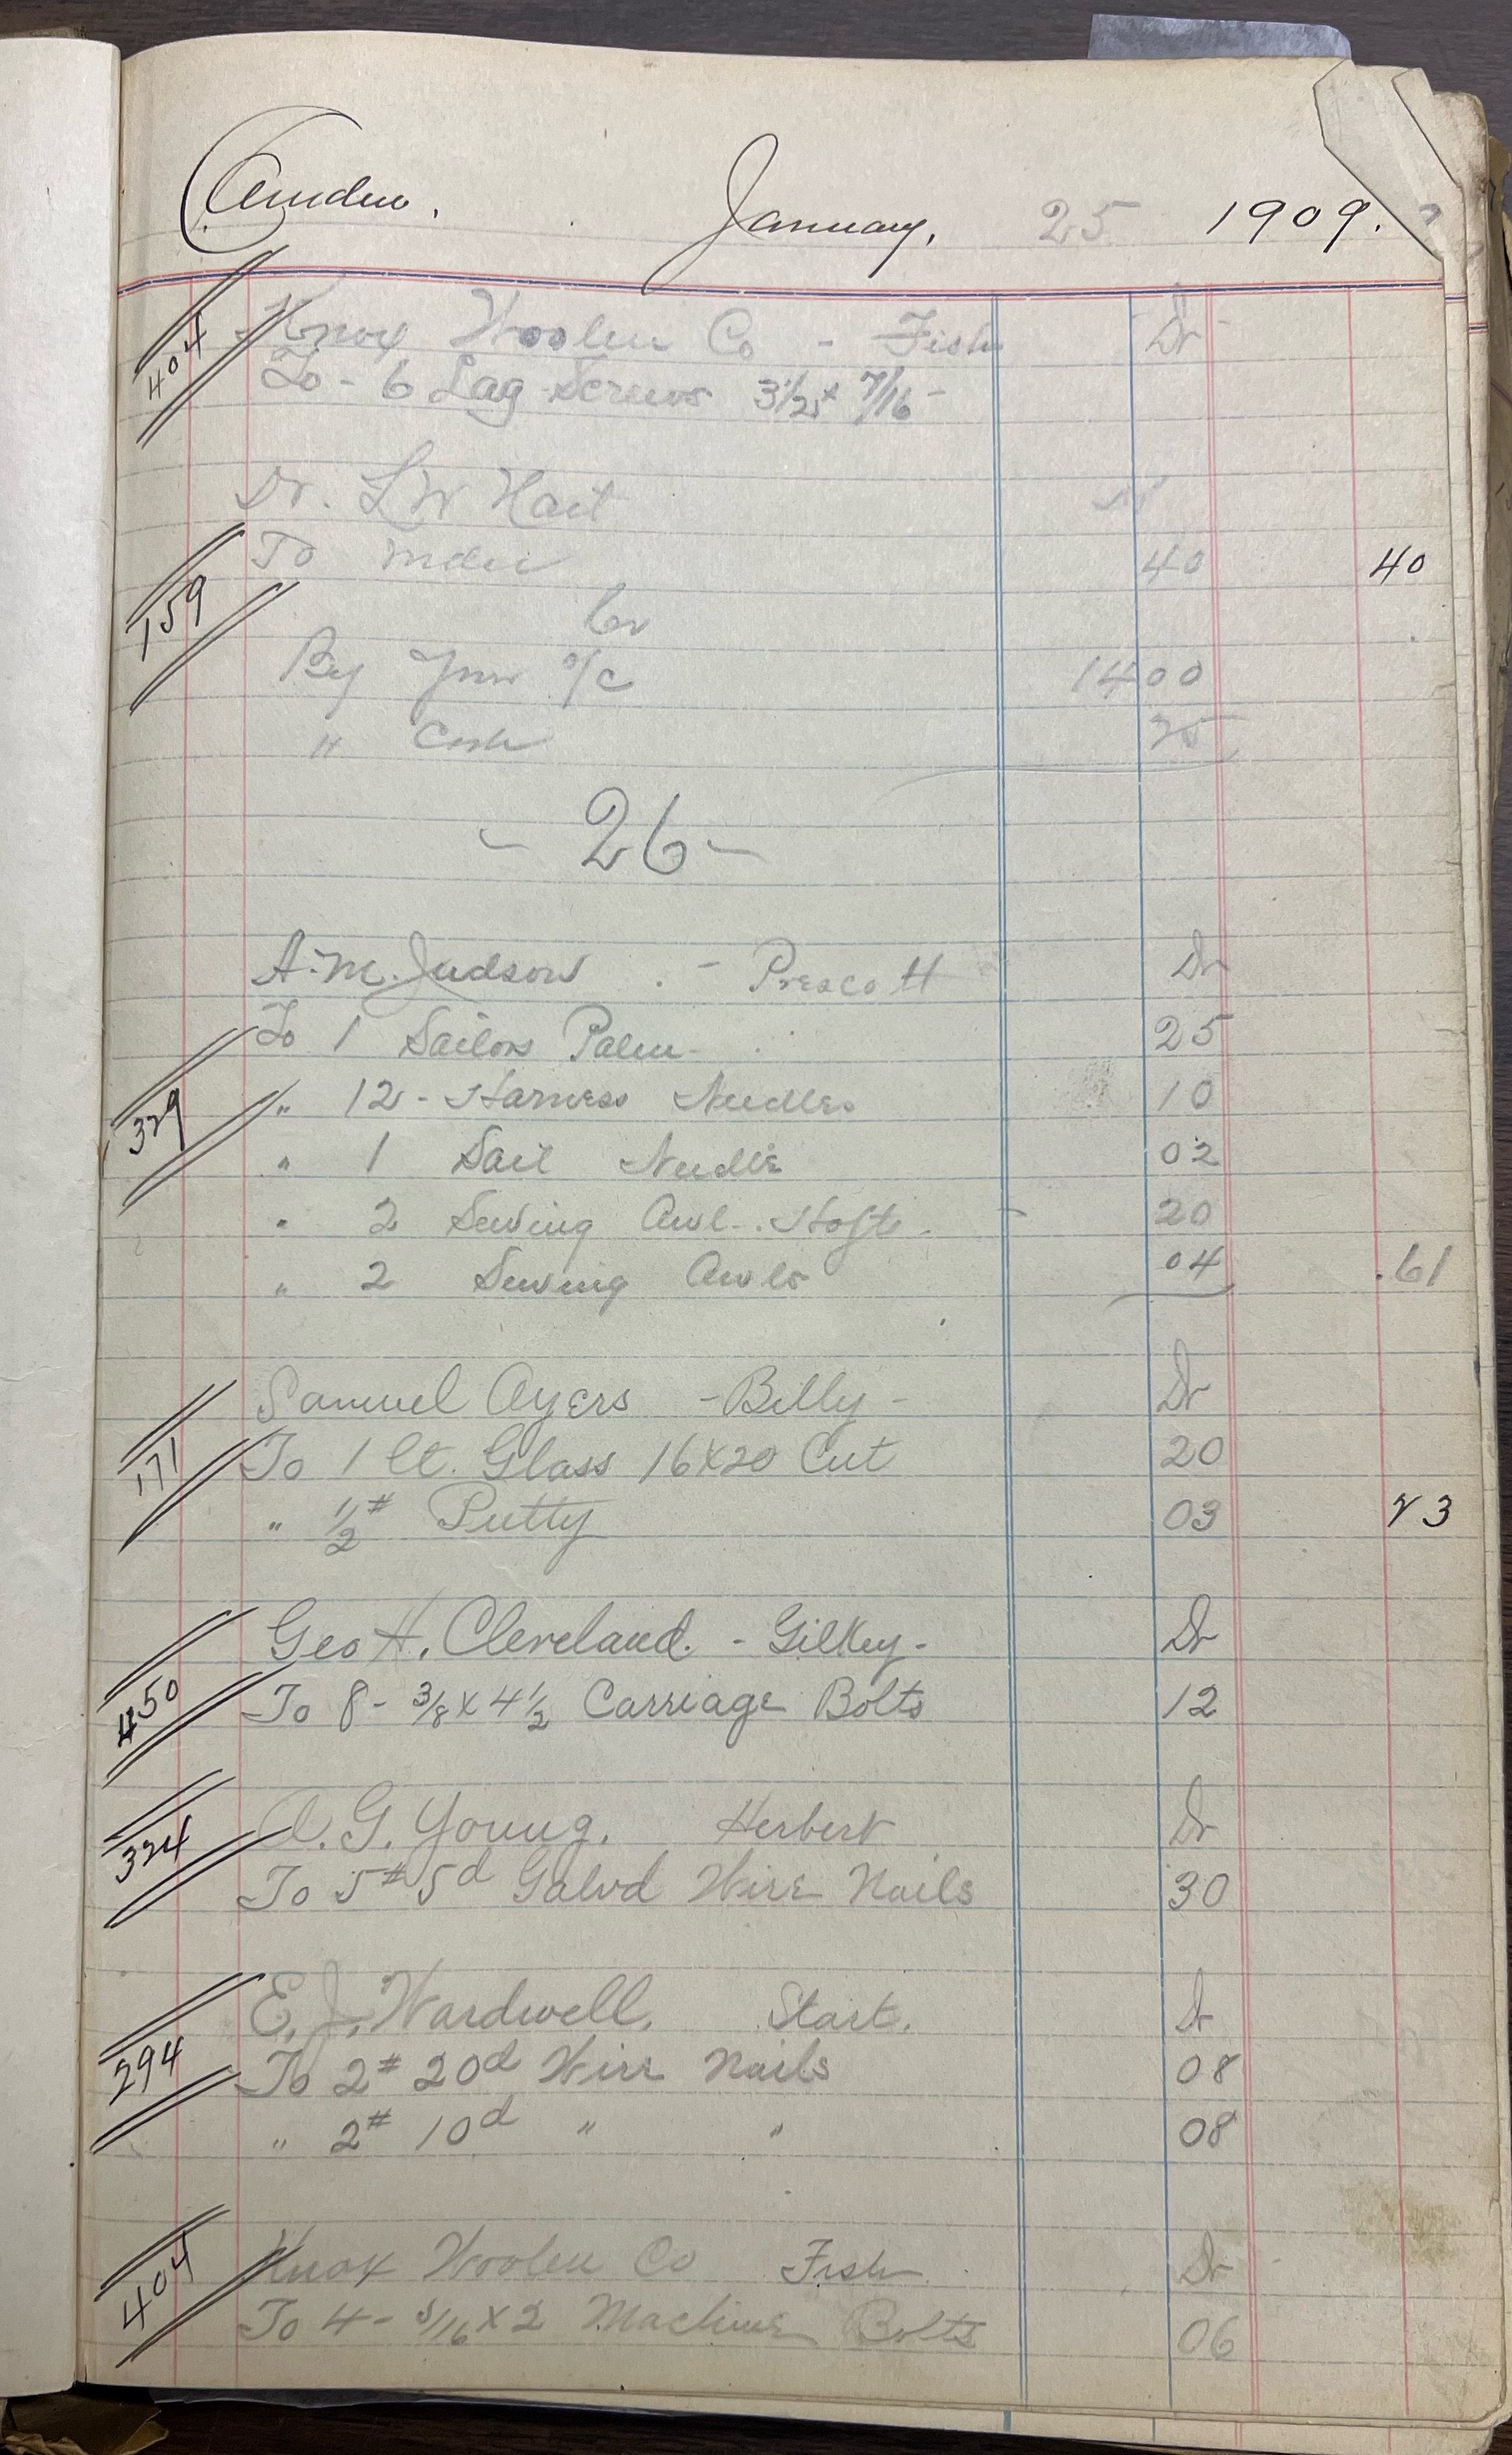 Camden. January, 25 1909.
404 Knox Woolen Co - Fish Dr
To - 6 Lag Screws 3 1/2 x 7/16 -
Dr. L W Hart Dr
159 To 40 40
Cr
By Your a/c 14 00
" Cash 75
- 26 -
A. M. Judson - Prescott Dr
To 1 Sailors Palm 25
329 " 12 - Harness Needles 10
" 1 Sail Needle 02
" 2 Sewing Awl Hafts 20
" 2 Sewing Awls 04 .61
Samuel Ayers - Billy - Dr
171 To 1 lt. Glass 16x20 Cut 20
" 1/2 # Putty 03 23
Geo H. Cleveland. - Gilkey - Dr
450 To 8 - 3/8 x 4 1/2 Carriage Bolts 12
A. G. Young. Herbert Dr
324 To 5 # 5d Galvd Wire Nails 30
E. J. Wardwell. Start. Dr
294 To 2 # 20d Wire Nails 08
" 2 # 10d " " 08
404 Knox Woolen Co Fish Dr
To 4 - 5/16 x 2 Machine Bolts 06